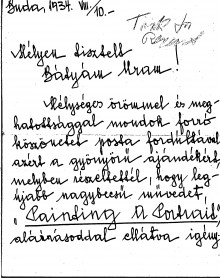 Buda, 1934. VIII/10.-
Mélyen tisztelt
Bátyám Uram!
Mélységes örömmel és meg-
hatottsággal mondok forró
köszönetet posta fordultával
azért a gyönyörű ajándékért
melyben részeltettél, hogy leg-
újabb nagybecsű művedet,
"Painting A Portrait",
aláírásoddal ellátva igény